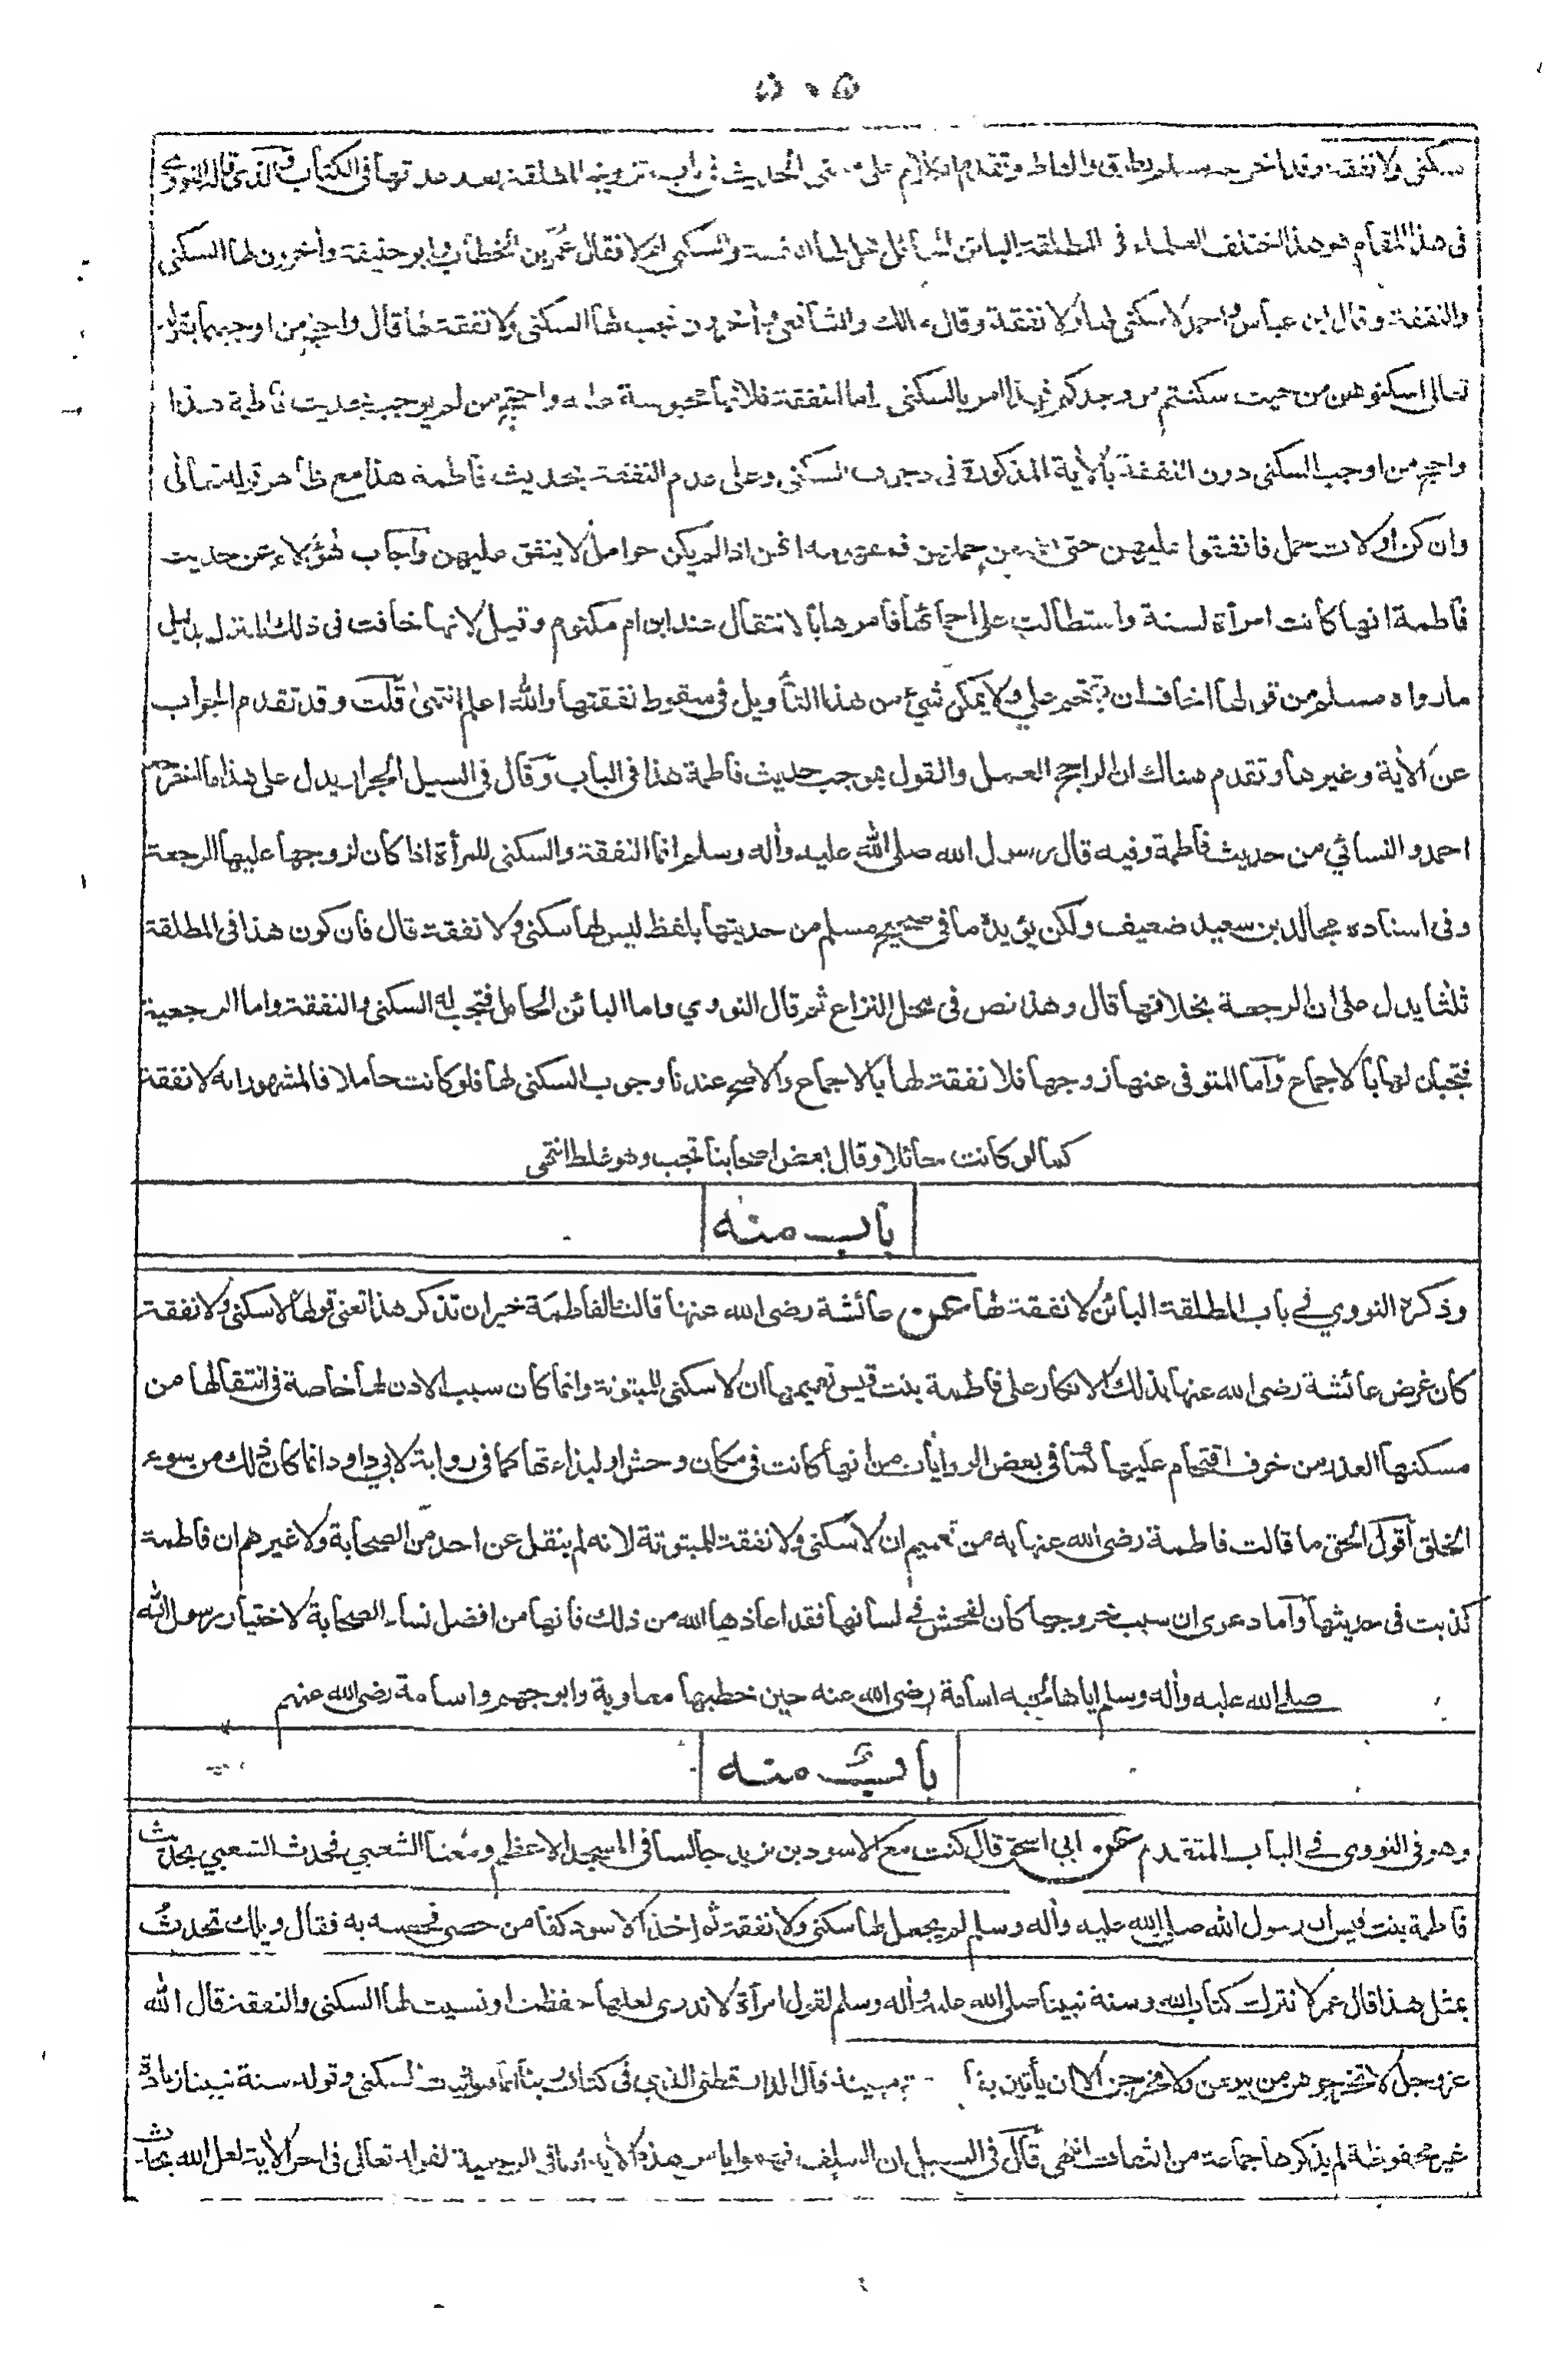 ٥٠٥
سكنى ولا نفقة وقد اخرجه مسلم بطرق والفاظ وتقدم الكلام على الحديث في باب تزويج المطلقة بعد عدتها في الكتاب والذي قاله النووي
في هذا المقام هو هذا اختلف العلماء في المطلقة البائن الحائل هل لها النفقة والسكنى ام لا فقال عمر بن الخطاب وابو حنيفة وآخرون لها السكنى
والنفقة وقال ابن عباس واحمد لا سكنى لها ولا نفقة وقال مالك والشافعي وآخرون تجب لها السكنى ولا نفقة لها قال واحتج من اوجبهما بقوله
تعالى اسكنوهن من حيث سكنتم من وجدكم فهذا امر بالسكنى اما النفقة فلانها محبوسة عليه واحتج من لم يوجب بحديث فاطمة هذا
واحتج من اوجب السكنى دون النفقة بالآية المذكورة في وجوب السكنى وعلى عدم النفقة بحديث فاطمة هذا مع ظاهر قوله تعالى
وان كن اولات حمل فانفقوا عليهن حتى يضعن حملهن فمفهومه انهن اذا لم يكن حوامل لا ينفق عليهن وأجاب هؤلاء عن حديث
فاطمة انها كانت امرأة لسنة واستطالت على احمائها فامرها بالانتقال عند ابن ام مكتوم وقيل لانها خافت في ذلك المنزل بدليل
ما رواه مسلم من قولها اخاف ان يقتحم علي ولا يمكن شيء من هذا التأويل في سقوط نفقتها والله اعلم انتهى قلت وقد تقدم الجواب
عن الآية وغيرها وتقدم هناك ان الراجح العمل والقول بموجب حديث فاطمة هذا في الباب وقال في السيل الجرار يدل على هذا ما اخرجه
احمد والنسائي من حديث فاطمة وفيه قال رسول الله صلى الله عليه وآله وسلم انما النفقة والسكنى للمرأة اذا كان لزوجها عليها الرجعة
وفي اسناده مجالد بن سعيد ضعيف ولكن يؤيده ما في صحيح مسلم من حديثها بلفظ ليس لها سكنى ولا نفقة قال فان كون هذا في المطلقة
ثلثا يدل على ان الرجعة بخلافها قال وهذا نص في محل النزاع ثم قال النووي واما البائن الحامل فتجب لها السكنى والنفقة واما الرجعية
فتجبان لها بالاجماع وأما المتوفى عنها زوجها فلا نفقة لها بالاجماع والاصح عندنا وجوب السكنى لها فلو كانت حاملا فالمشهور انه لا نفقة
كما لو كانت حائلا وقال بعض اصحابنا تجب وهو غلط انتهى
باب منه
وذكره النووي في باب المطلقة البائن لا نفقة لها عن عائشة رضي الله عنها قالت ما لفاطمة خير ان تذكر هذا تعني قولها لا سكنى ولا نفقة
كان غرض عائشة رضي الله عنها بذلك الانكار على فاطمة بنت قيس تعميمها ان لا سكنى للمبتوتة وانما كان سبب الاذن لها خاصة في انتقالها من
مسكنها العذر من خوف اقتحام عليها كما في بعض الروايات من انها كانت في مكان وحش او لبذاءتها كما في رواية لابي داود انما كان ذلك من سوء
الخلق أقول الحق ما قالت فاطمة رضي الله عنها به من تعميم ان لا سكنى ولا نفقة للمبتوتة لانه لم ينقل عن احد من الصحابة ولا غيرهم ان فاطمة
كذبت في حديثها وأما دعوى ان سبب خروجها كان لفحش في لسانها فقد اعاذها الله من ذلك فانها من افضل نساء الصحابة لاختيار رسول الله
صلى الله عليه وآله وسلم اياها لحبه اسامة رضي الله عنه حين خطبها معاوية وابو جهم واسامة رضي الله عنهم
باب منه
وهو في النووي في الباب المتقدم عن ابي اسحق قال كنت مع الاسود بن يزيد جالسا في المسجد الاعظم ومعنا الشعبي فحدث الشعبي بحديث
فاطمة بنت قيس ان رسول الله صلى الله عليه وآله وسلم لم يجعل لها سكنى ولا نفقة ثم اخذ الاسود كفا من حصى فحصبه به فقال ويلك تحدث
بمثل هذا قال عمر لا نترك كتاب الله وسنة نبينا صلى الله عليه وآله وسلم لقول امرأة لا ندري لعلها حفظت او نسيت لها السكنى والنفقة قال الله
عز وجل لا تخرجوهن من بيوتهن ولا يخرجن الا ان يأتين بفاحشة مبينة قال الدارقطني الذي في كتاب ربنا انما هو اثبات السكنى وقوله سنة نبينا زيادة
غير محفوظة لم يذكرها جماعة من الثقات انتهى قال في السيل ان السلف فهموا ان هذه الآية انما في الرجعية لقوله تعالى في اخر الآية لعل الله يحدث